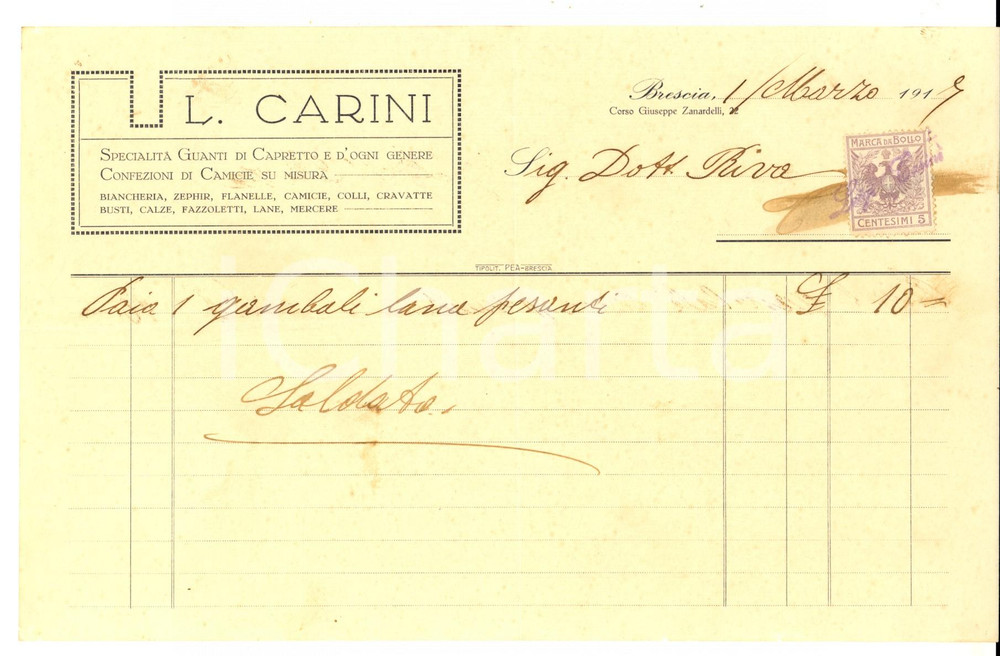 L. CARINI
SPECIALITÀ GUANTI DI CAPRETTO E D'OGNI GENERE
CONFEZIONI DI CAMICIE SU MISURA
BIANCHERIA, ZEPHIR, FLANELLE, CAMICIE, COLLI, CRAVATTE
BUSTI, CALZE, FAZZOLETTI, LANE, MERCERE
Brescia, 1/Marzo 1917
Corso Giuseppe Zanardelli, 22
Sig. Dott. Riva
MARCA DA BOLLO
CENTESIMI 5
TIPOLIT. PEA-BRESCIA
Paia 1 gambali lana pesanti £ 10=
Saldato.
iCharta